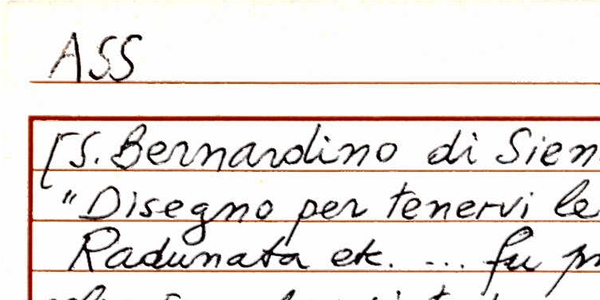 ASS
[S. Bernardino di Sien
"Disegno per tenervi le
Radunata etc. ... fu pr